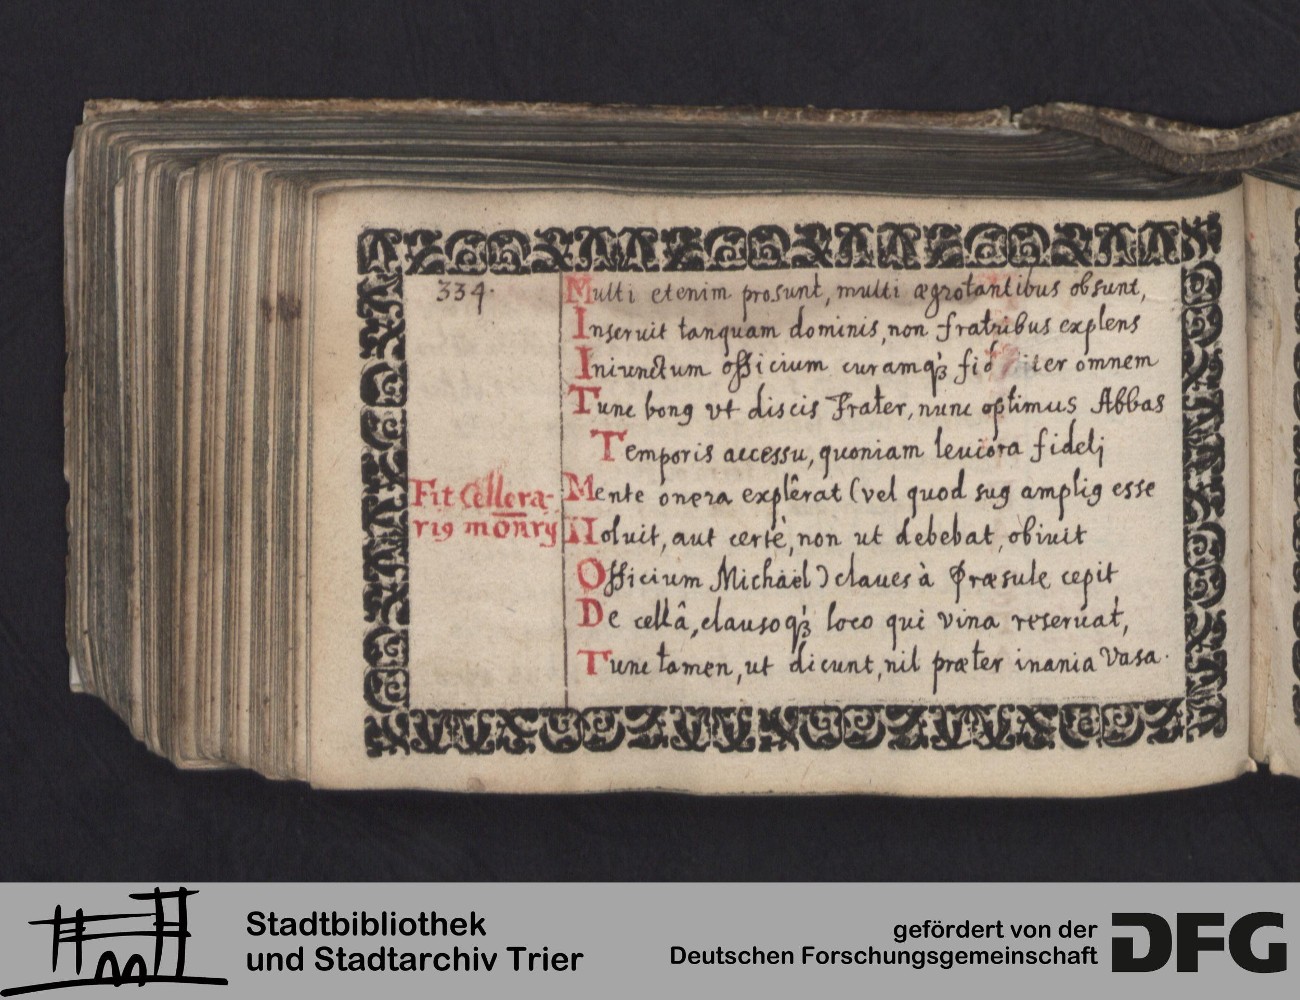 334.
Multi etenim prosunt, multi ægrotantibus obsunt,
Inseruit tanquam dominis, non fratribus explens
Iniunctum officium curamqꝫ omnem
Tunc bonꝰ vt discis Frater, nunc optimus Abbas
Temporis accessu, quoniam leuiora fideli
Fit Cellera-
riꝰ mōnrÿ
Mente onera explêrat (vel quod suꝰ ampliꝰ esse
Noluit, aut certè, non ut debebat, obiuit
Officium Michaël) claues à Præsule cepit
De cellâ, clausoqꝫ loco qui vina reseruat,
Tunc tamen, ut dicunt, nil præter inania Vasa.
Stadtbibliothek
und Stadtarchiv Trier
gefördert von der
Deutschen Forschungsgemeinschaft
DFG